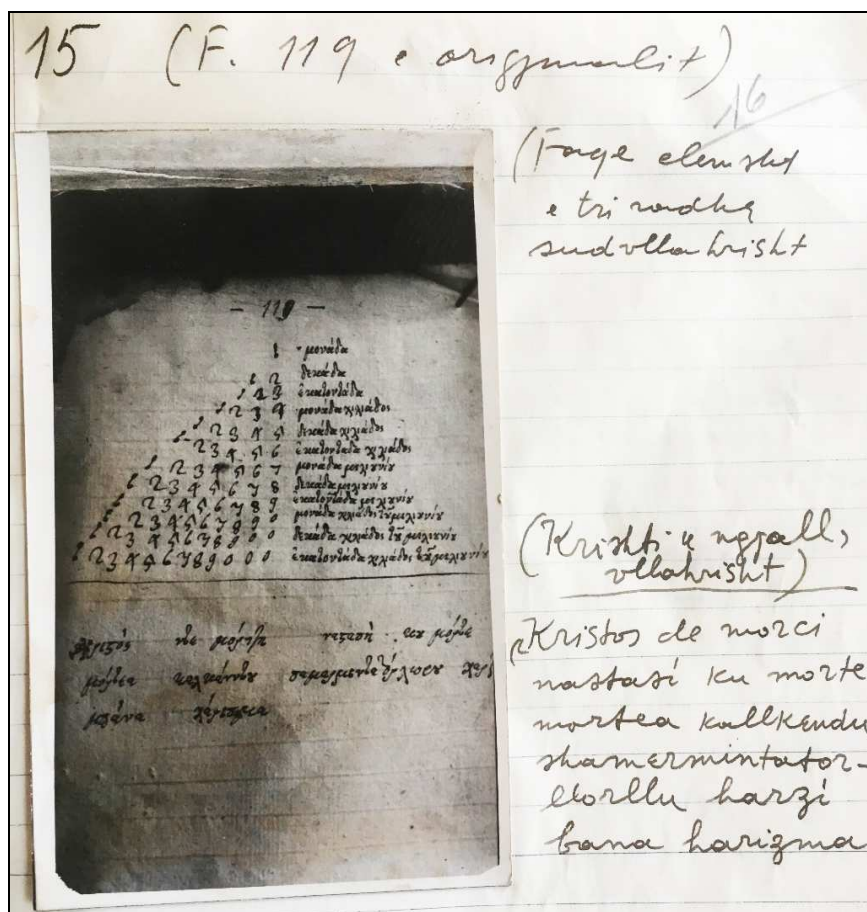 15 (F. 119 e origjinalit)
16
(Faqe elenisht
e tri radhë
sudvllahisht
- 119 -
1 μονάδα
1 2 δεκάδα
1 2 3 ἑκατοντάδα
1 2 3 4 μονάδα χιλιάδος
1 2 3 4 5 δεκάδα χιλιάδος
1 2 3 4 5 6 ἑκατοντάδα χιλιάδος
1 2 3 4 5 6 7 μονάδα μιλιουνίου
1 2 3 4 5 6 7 8 δεκάδα μιλιουνίου
1 2 3 4 5 6 7 8 9 ἑκατοντάδα μιλιουνίου
1 2 3 4 5 6 7 8 9 0 μονάδα χιλιάδος τοῦ μιλιουνίου
1 2 3 4 5 6 7 8 9 0 0 δεκάδα χιλιάδος τοῦ μιλιουνίου
1 2 3 4 5 6 7 8 9 0 0 0 ἑκατοντάδα χιλιάδος τοῦ μιλιουνίου
ντε κου μόρτε
μόρτεα
μπάνα
(Krishti u ngjall,
vllahisht)
Kristos de morci
nastasi ku morte
mortea kallkendu
shamermintator-
llorllu harzi
bana harizma